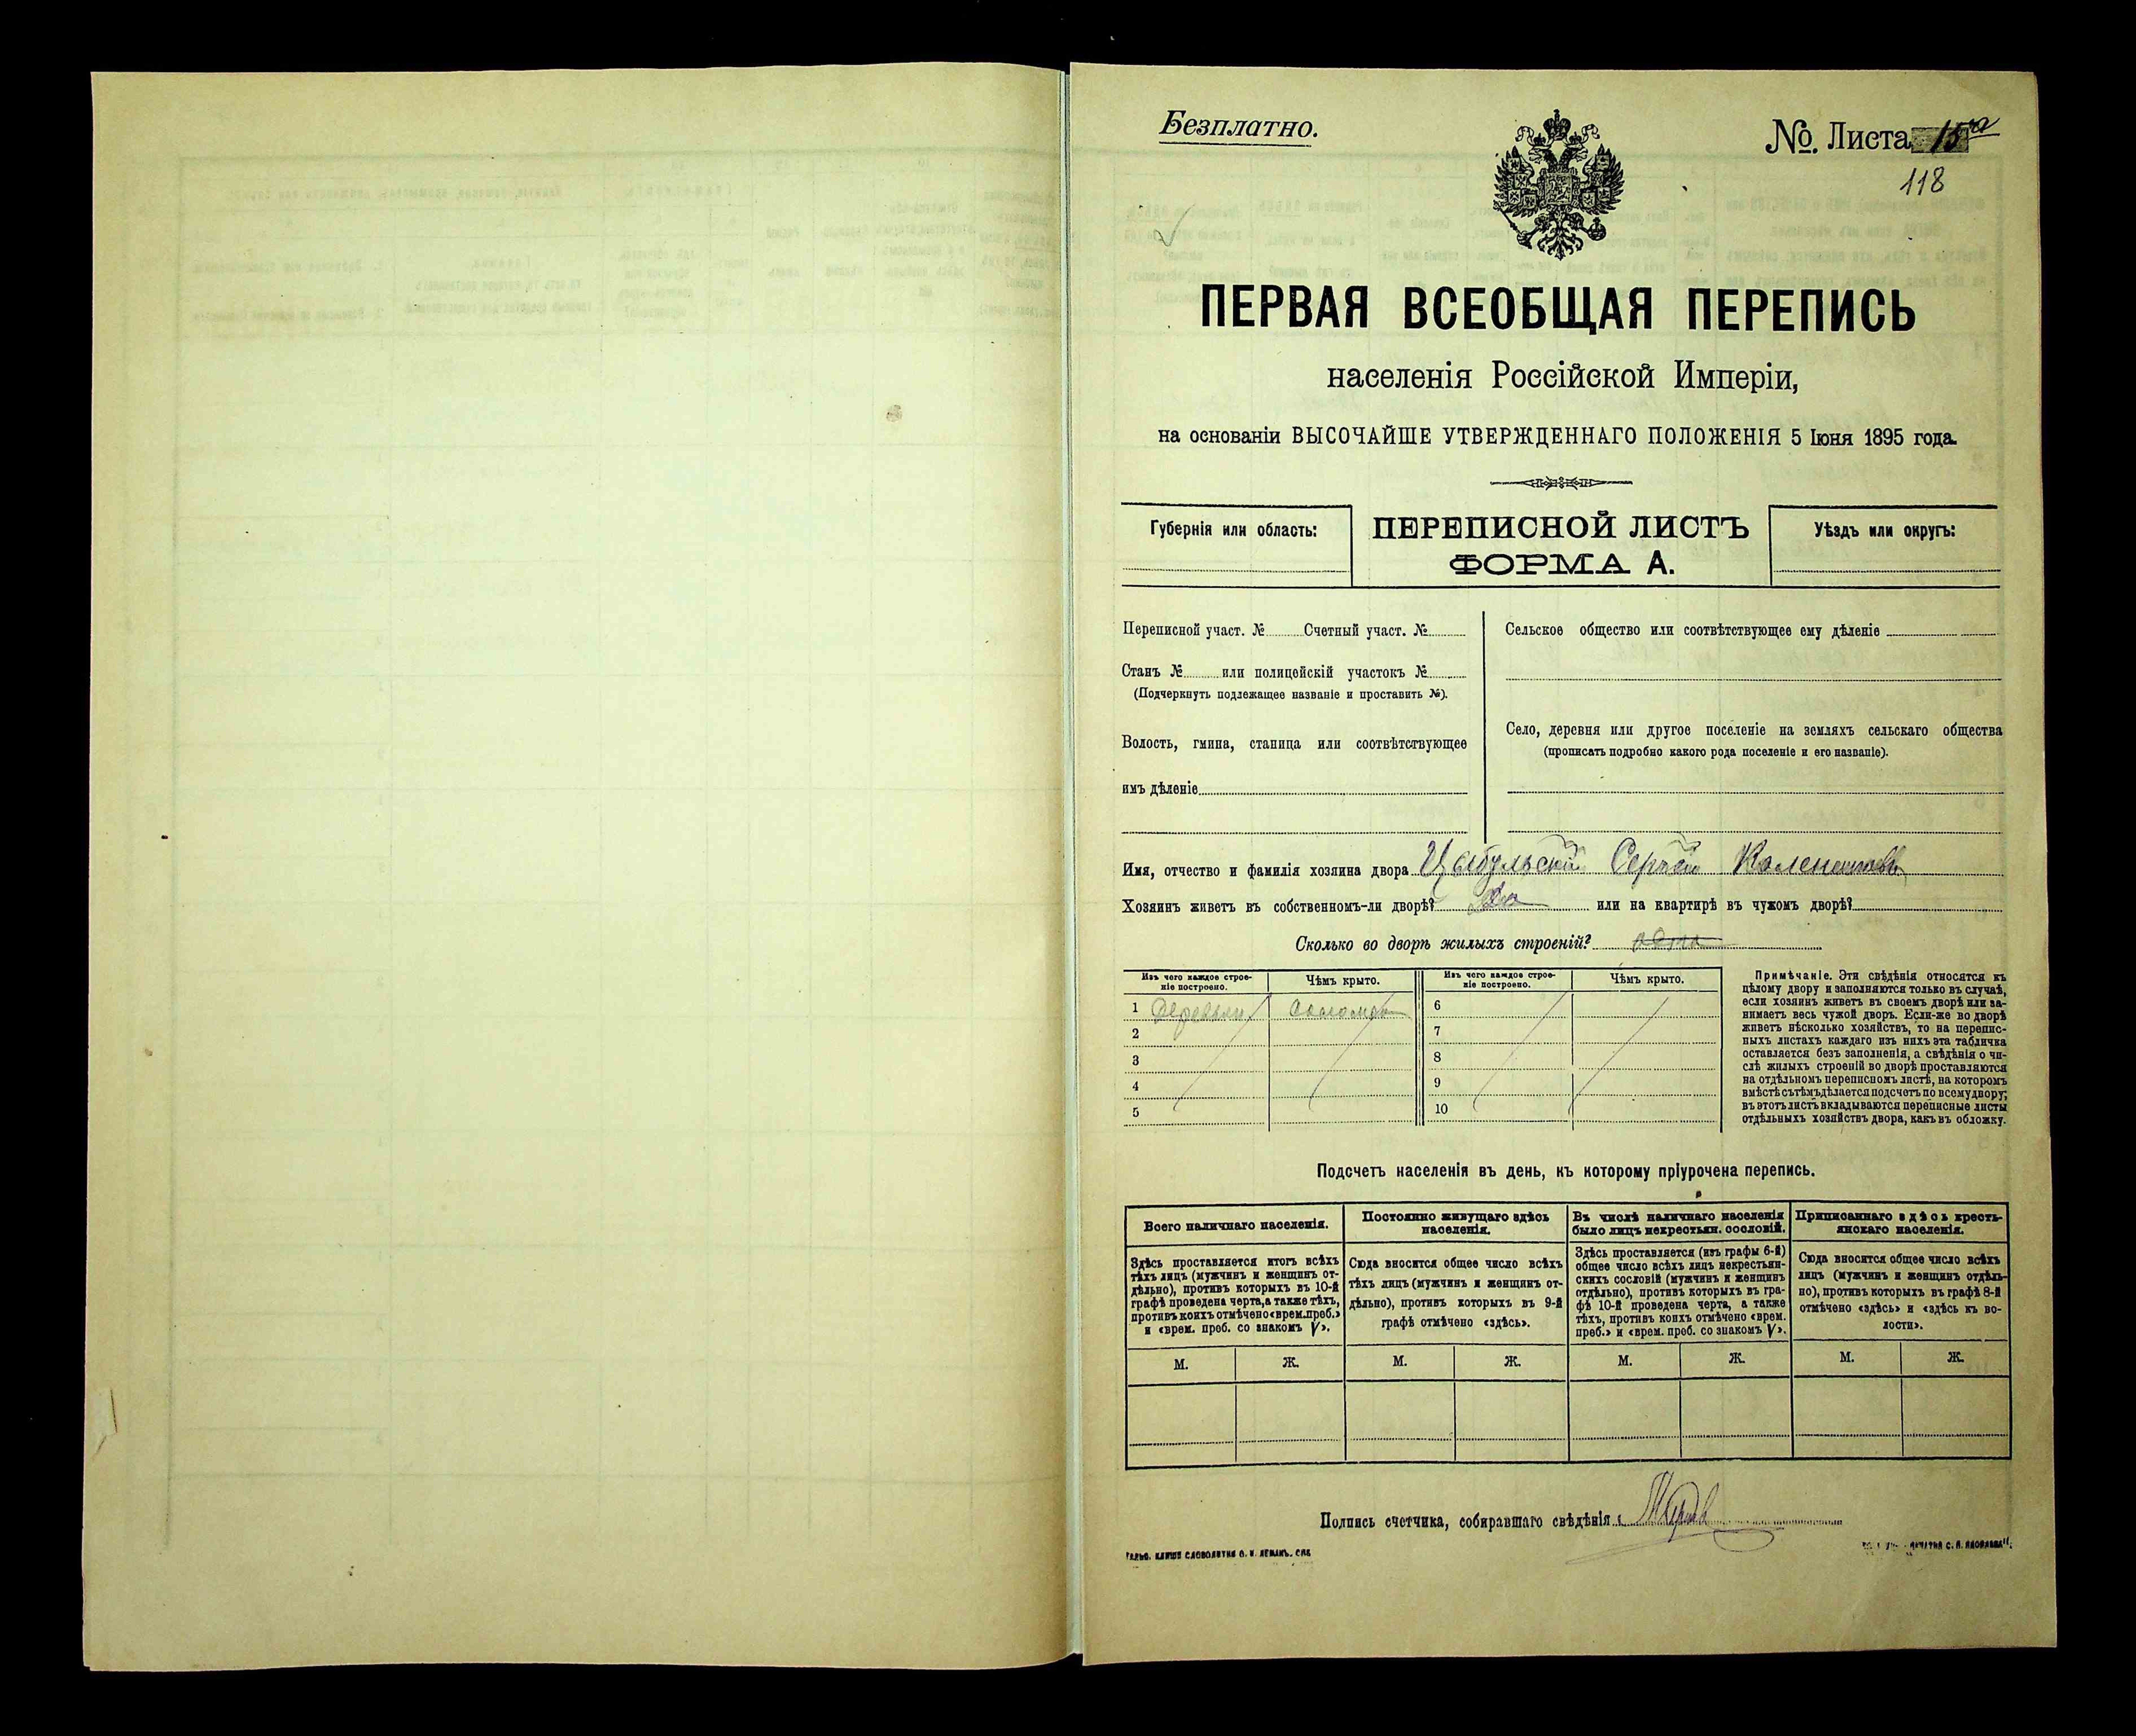 Безплатно.
№. Листа 15
118
ПЕРВАЯ ВСЕОБЩАЯ ПЕРЕПИСЬ
населенія Россійской Имперіи,
на основаніи ВЫСОЧАЙШЕ УТВЕРЖДЕННАГО ПОЛОЖЕНІЯ 5 Іюня 1895 года.
Губернія или область:
ПЕРЕПИСНОЙ ЛИСТЪ
ФОРМА А.
Уѣздъ или округъ:
Переписной участ. № Счетный участ. №
Станъ № или полицейскій участокъ №
(Подчеркнуть подлежащее названіе и проставить №).
Волость, гмина, станица или соотвѣтствующее
имъ дѣленіе
Сельское общество или соотвѣтствующее ему дѣленіе
Село, деревня или другое поселеніе на земляхъ сельскаго общества
(прописать подробно какого рода поселеніе и его названіе).
Имя, отчество и фамилія хозяина двора Цыбульскій Сергѣй
Хозяинъ живетъ въ собственномъ-ли дворѣ? Да или на квартирѣ въ чужомъ дворѣ?
Сколько во дворѣ жилыхъ строеній?
Изъ чего каждое строе-
ніе построено.
Чѣмъ крыто.
1 Деревян Соломою
2
3
4
5
Изъ чего каждое строе-
ніе построено.
Чѣмъ крыто.
6
7
8
9
10
Примѣчаніе. Эти свѣдѣнія относятся къ
цѣлому двору и заполняются только въ случаѣ,
если хозяинъ живетъ въ своемъ дворѣ или за-
нимаетъ весь чужой дворъ. Если-же во дворѣ
живетъ нѣсколько хозяйствъ, то на перепис-
ныхъ листахъ каждаго изъ нихъ эта табличка
оставляется безъ заполненія, а свѣдѣнія о чи-
слѣ жилыхъ строеній во дворѣ проставляются
на отдѣльномъ переписномъ листѣ, на которомъ
вмѣстѣ съ тѣмъ дѣлается подсчетъ по всему двору;
въ этотъ листъ вкладываются переписные листы
отдѣльныхъ хозяйствъ двора, какъ въ обложку.
Подсчетъ населенія въ день, къ которому пріурочена перепись.
Всего наличнаго населенія.
Здѣсь проставляется итогъ всѣхъ
тѣхъ лицъ (мужчинъ и женщинъ от-
дѣльно), противъ которыхъ въ 10-й
графѣ проведена черта, а также тѣхъ,
противъ коихъ отмѣчено «врем. преб.»
и «врем. преб. со знакомъ V».
М. Ж.
Постоянно живущаго здѣсь
населенія.
Сюда вносится общее число всѣхъ
тѣхъ лицъ (мужчинъ и женщинъ от-
дѣльно), противъ которыхъ въ 9-й
графѣ отмѣчено «здѣсь».
М. Ж.
Въ числѣ наличнаго населенія
было лицъ некрестьян. сословій.
Здѣсь проставляется (изъ графы 6-й)
общее число всѣхъ лицъ некрестьян-
скихъ сословій (мужчинъ и женщинъ
отдѣльно), противъ которыхъ въ гра-
фѣ 10-й проведена черта, а также
тѣхъ, противъ коихъ отмѣчено «врем.
преб.» и «врем. преб. со знакомъ V».
М. Ж.
Приписаннаго здѣсь кресть-
янскаго населенія.
Сюда вносится общее число всѣхъ
лицъ (мужчинъ и женщинъ отдѣль-
но), противъ которыхъ въ графѣ 8-й
отмѣчено «здѣсь» и «здѣсь къ во-
лости».
М. Ж.
Подпись счетчика, собиравшаго свѣдѣнія:
КЛИШЕ СЛОВОЛИТНИ О. И. ЛЕМАНЪ. СПБ
ПЕЧАТНЯ С. П. ЯКОВЛЕВА.